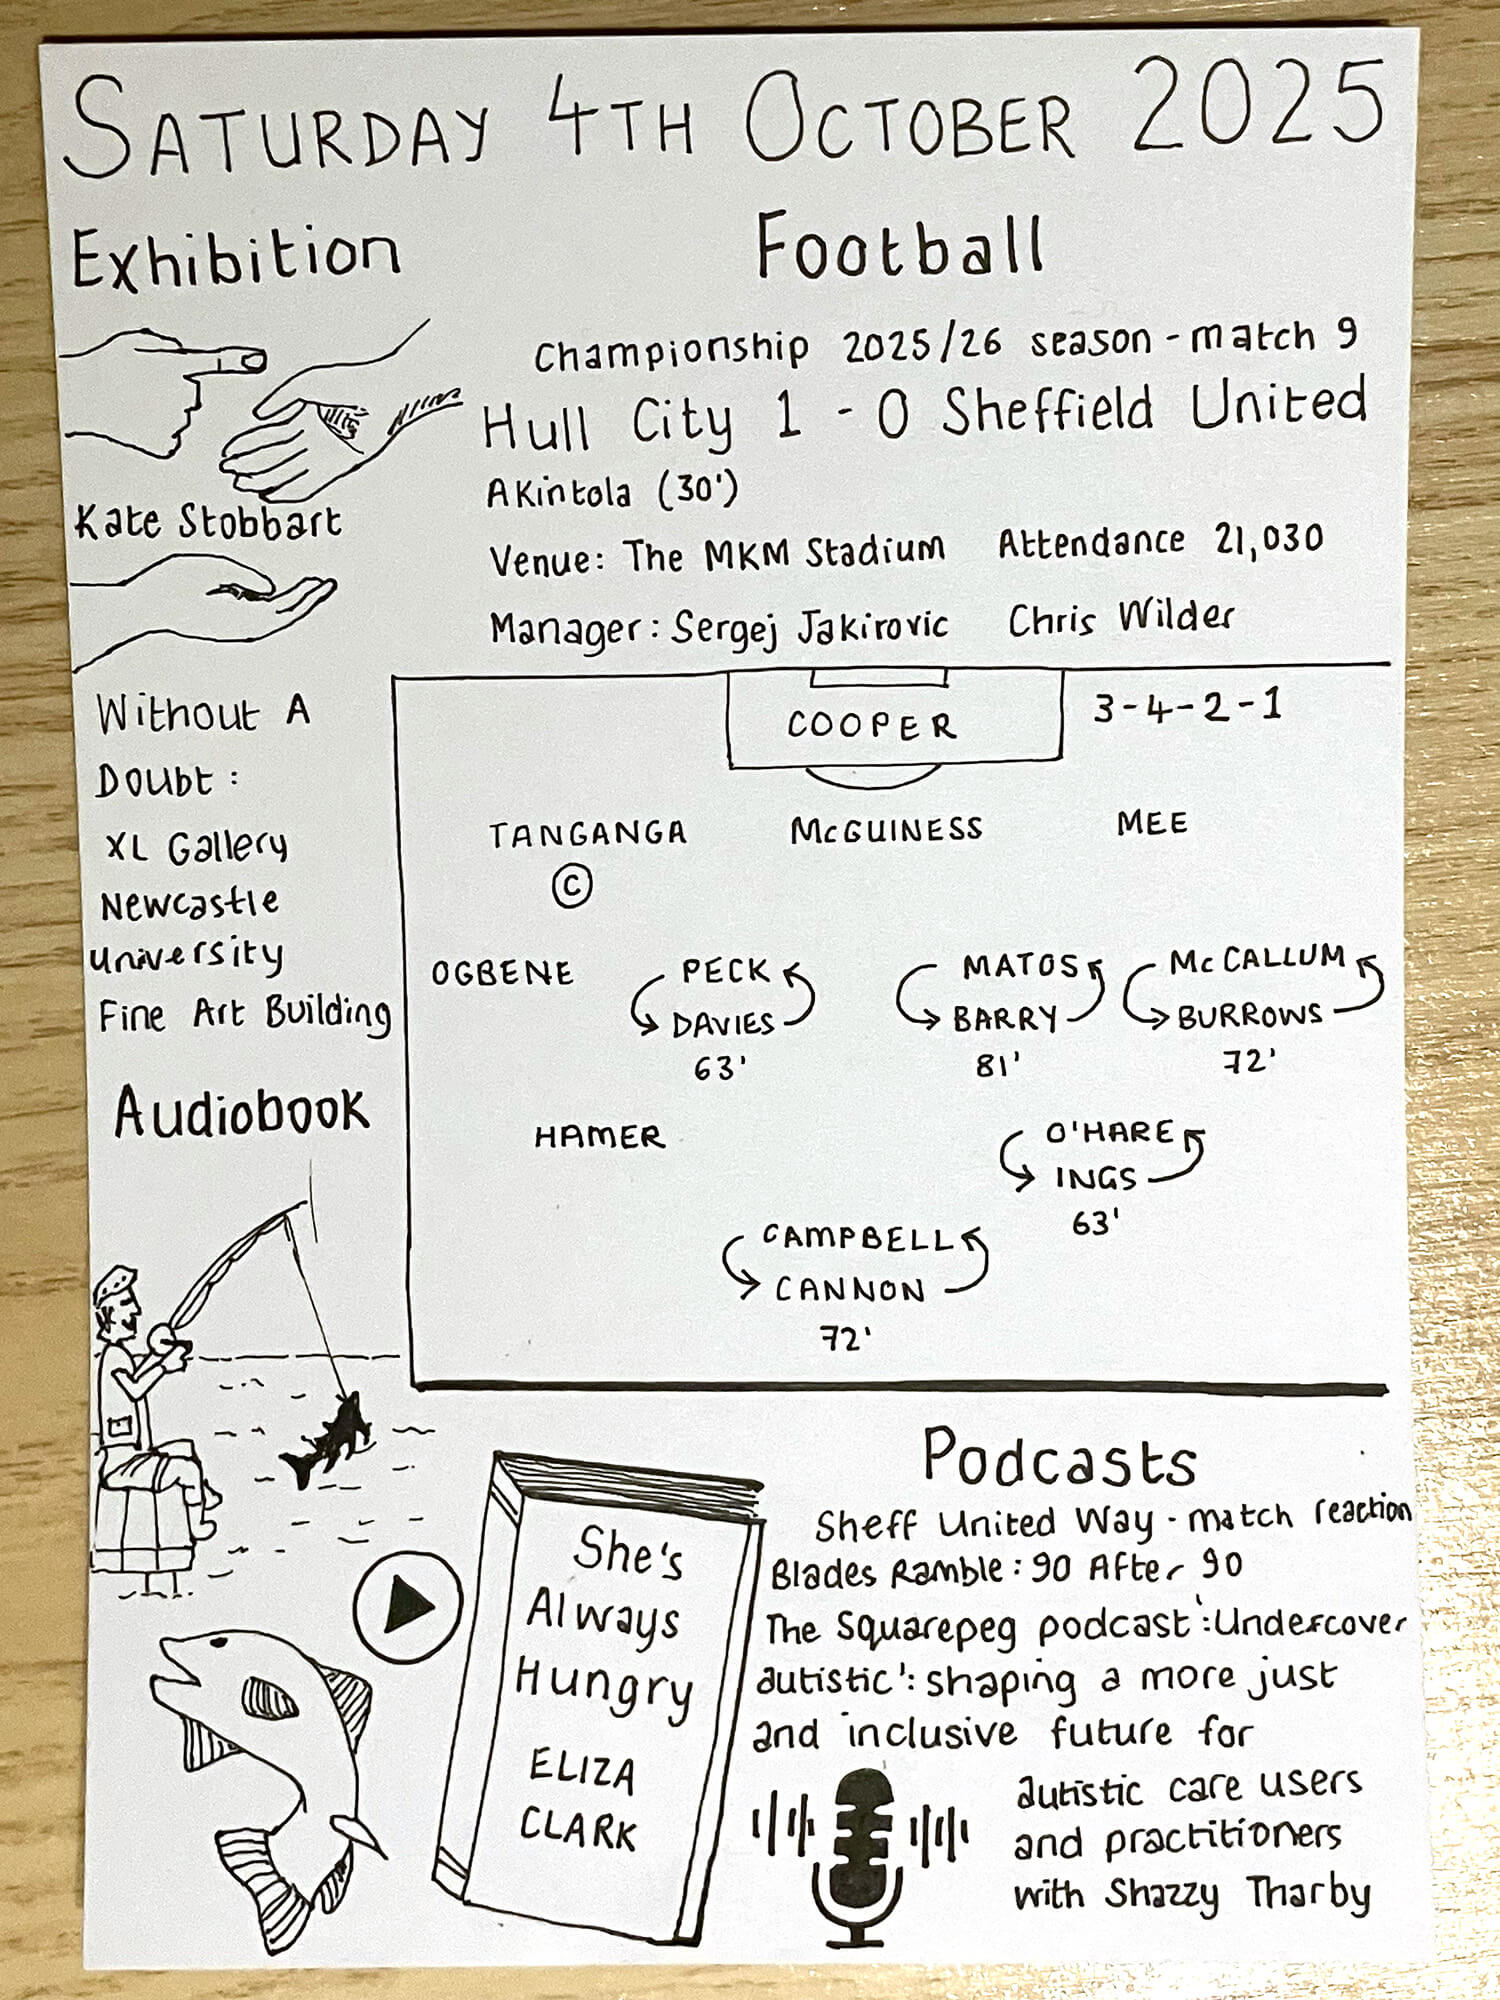 SATURDAY 4TH OCTOBER 2025
Exhibition
Kate Stobbart
Without A
Doubt:
XL Gallery
Newcastle
University
Fine Art Building
Football
Championship 2025/26 season - match 9
Hull City 1 - 0 Sheffield United
Akintola (30')
Venue: The MKM Stadium Attendance 21,030
Manager: Sergej Jakirovic Chris Wilder
COOPER 3-4-2-1
TANGANGA McGUINESS MEE
C
OGBENE PECK MATOS McCALLUM
DAVIES BARRY BURROWS
63' 81' 72'
HAMER O'HARE
INGS
63'
CAMPBELL
CANNON
72'
Audiobook
She's
Always
Hungry
ELIZA
CLARK
Podcasts
Sheff United Way - match reaction
Blades Ramble: 90 After 90
The Squarepeg podcast: 'Undercover
autistic': shaping a more just
and inclusive future for
autistic care users
and practitioners
with Shazzy Tharby